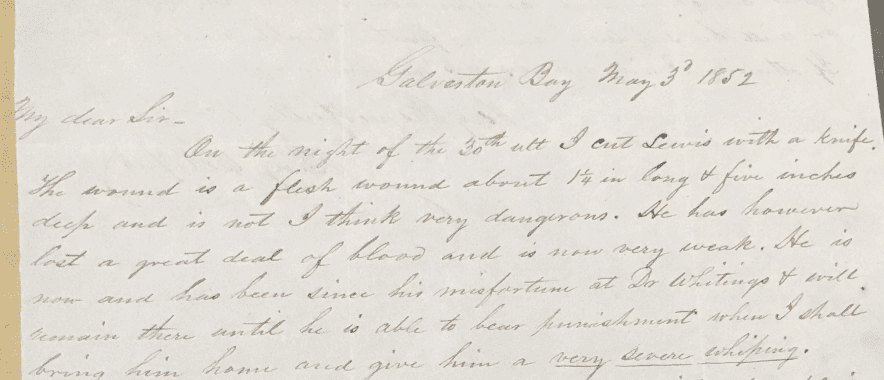 Galveston Bay May 3d 1852
My dear Sir -
On the night of the 30th ult I cut Lewis with a knife.
The wound is a flesh wound about 1¼ in long & five inches
deep and is not I think very dangerous. He has however
lost a great deal of blood and is now very weak. He is
now and has been since his misfortune at Dr Whitings & will
remain there until he is able to bear punishment when I shall
bring him home and give him a very severe whiping.